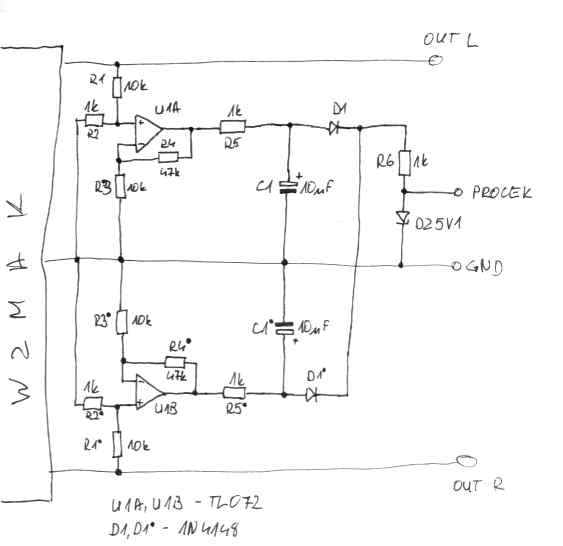 OUT L
R1
10k
U1A
1k
R2
R4
47k
1k
R5
D1
R3
10k
C1
+
10µF
R6
1k
PROCEK
D2 5V1
GND
WZMAK
R3*
10k
C1*
10µF
+
R4*
47k
1k
R2*
U1B
1k
R5*
D1*
R1*
10k
OUT R
U1A, U1B - TL072
D1, D1* - 1N4148